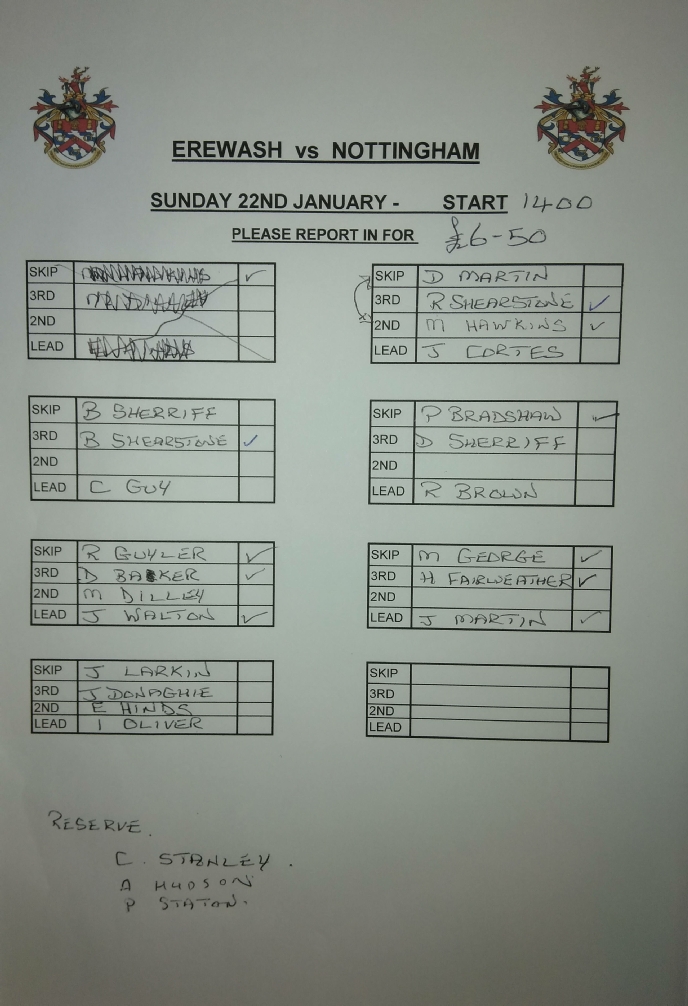 EREWASH vs NOTTINGHAM
SUNDAY 22ND JANUARY - START 1400
PLEASE REPORT IN FOR £6-50
SKIP
3RD
2ND
LEAD
SKIP D MARTIN
3RD R SHEARSTONE ✓
2ND M HAWKINS ✓
LEAD J CORTES
SKIP B SHERRIFF
3RD B SHEARSTONE ✓
2ND
LEAD C GUY
SKIP P BRADSHAW ✓
3RD D SHERRIFF
2ND
LEAD R BROWN
SKIP R GUYLER ✓
3RD D BARKER ✓
2ND M DILLEY
LEAD J WALTON ✓
SKIP M GEORGE ✓
3RD H FAIRWEATHER ✓
2ND
LEAD J MARTIN ✓
SKIP J LARKIN
3RD J DONAGHIE
2ND E HINDS
LEAD I OLIVER
SKIP
3RD
2ND
LEAD
RESERVE.
C. STANLEY.
A HUDSON
P STATON.